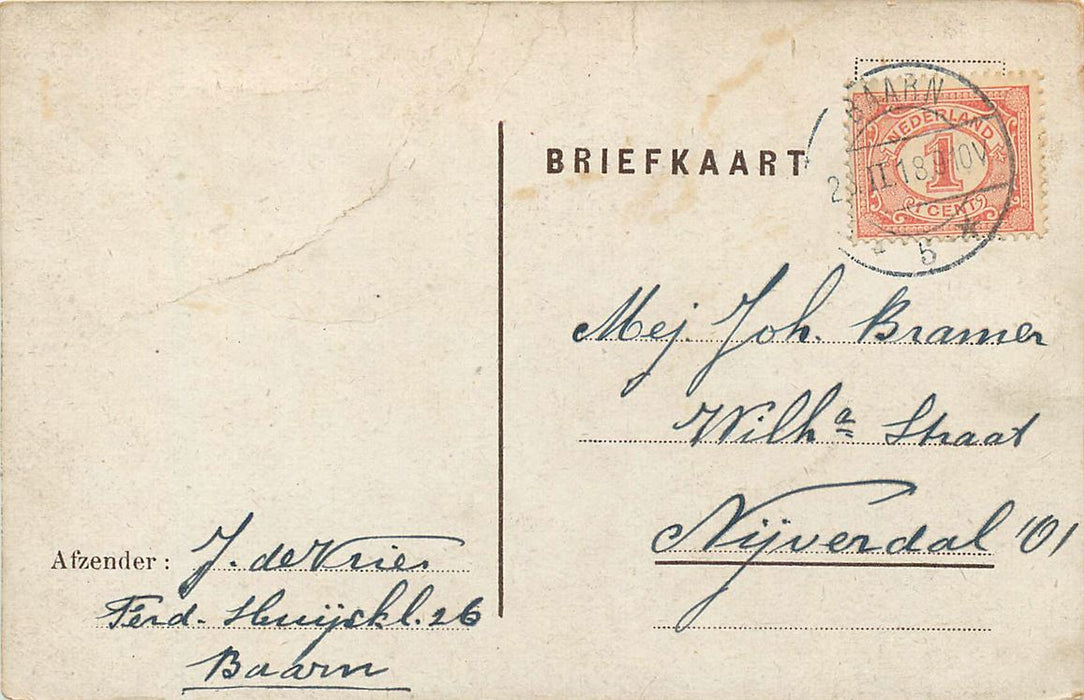 BRIEFKAART
BAARN
II.18.9 10V
5
NEDERLAND
1
CENT
Mej. Joh. Bramer
Wilhª Straat
Nijverdal '01
Afzender: J. de Vries
Ferd. Huijckl. 26
Baarn